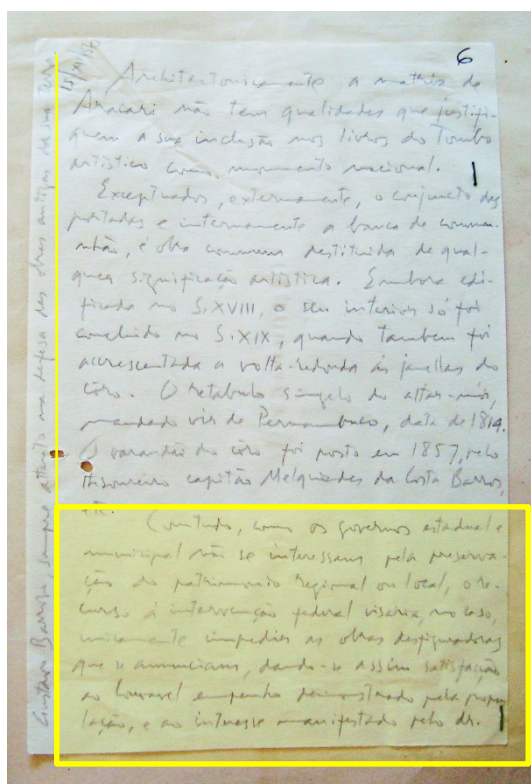 6
15/XI/57
Architectonicamente a matriz de
Aracati não tem qualidades que justifi-
quem a sua inclusão nos livros do Tombo
artistico como monumento nacional.
Exceptuados, externamente, o conjuncto das
portadas e internamente a banca de commu-
nhão, é obra commum destituida de qual-
quer significação artistica. Embora edi-
ficada no S.XVIII, o seu interior só foi
concluido no S.XIX, quando tambem foi
accrescentada a volta-redonda ás janellas do
côro. O retabulo singelo do altar-mór,
mandado vir de Pernambuco, data de 1814.
O varandão do côro foi posto em 1857, pelo
thesoureiro capitão Melquiades da Costa Barros,
etc.
Comtudo, como os governos estadual e
municipal não se interessam pela preserva-
ção do patrimonio regional ou local, o re-
curso á intervenção federal visaria, no caso,
unicamente impedir as obras desfiguradoras
que se annunciam, dando-se assim satisfação
ao louvavel empenho demonstrado pela popu
lação, e ao interesse manifestado pelo dr.
Gustavo Barroso, sempre attento na defesa das obras antigas da sua terra